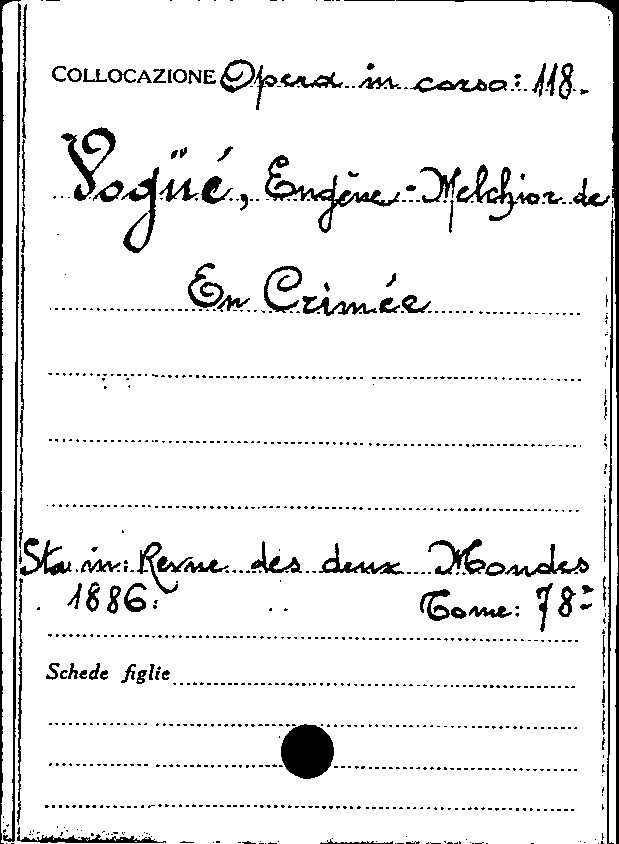 COLLOCAZIONE Opera in corso: 118.
Vogüé, Eugène-Melchior de
En Crimée
Sta in: Revue des deux Mondes
1886. Tome: 78º
Schede figlie